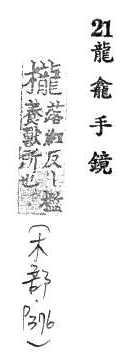 21龍龕手鏡
櫳落紅反丨檻
養獸所也
(木部.P376)